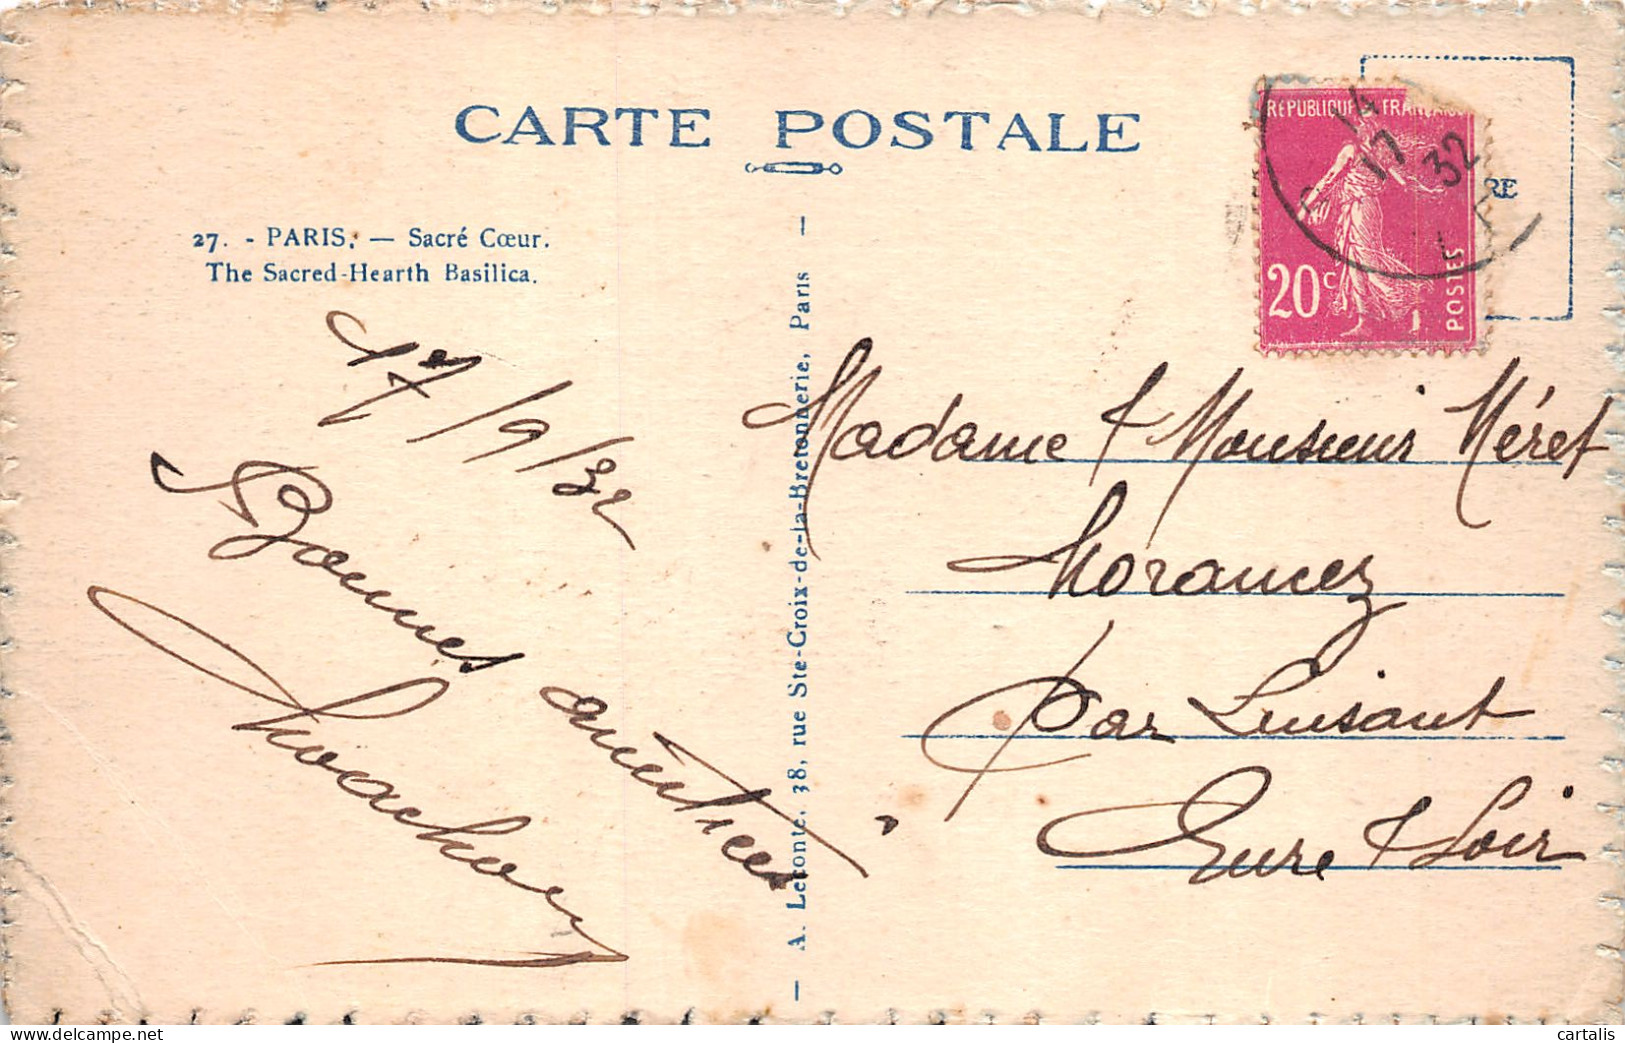 CARTE POSTALE
27. - PARIS. — Sacré Cœur.
The Sacred-Hearth Basilica.
17/9/32
Bonnes amitiés
A. Leconte, 38, rue Ste-Croix-de-la-Bretonnerie, Paris
RÉPUBLIQUE FRANÇAISE
14
17
32
RE
20c
POSTES
Madame & Monsieur Méret
Morancez
par Luisant
Eure & Loir
cartalis